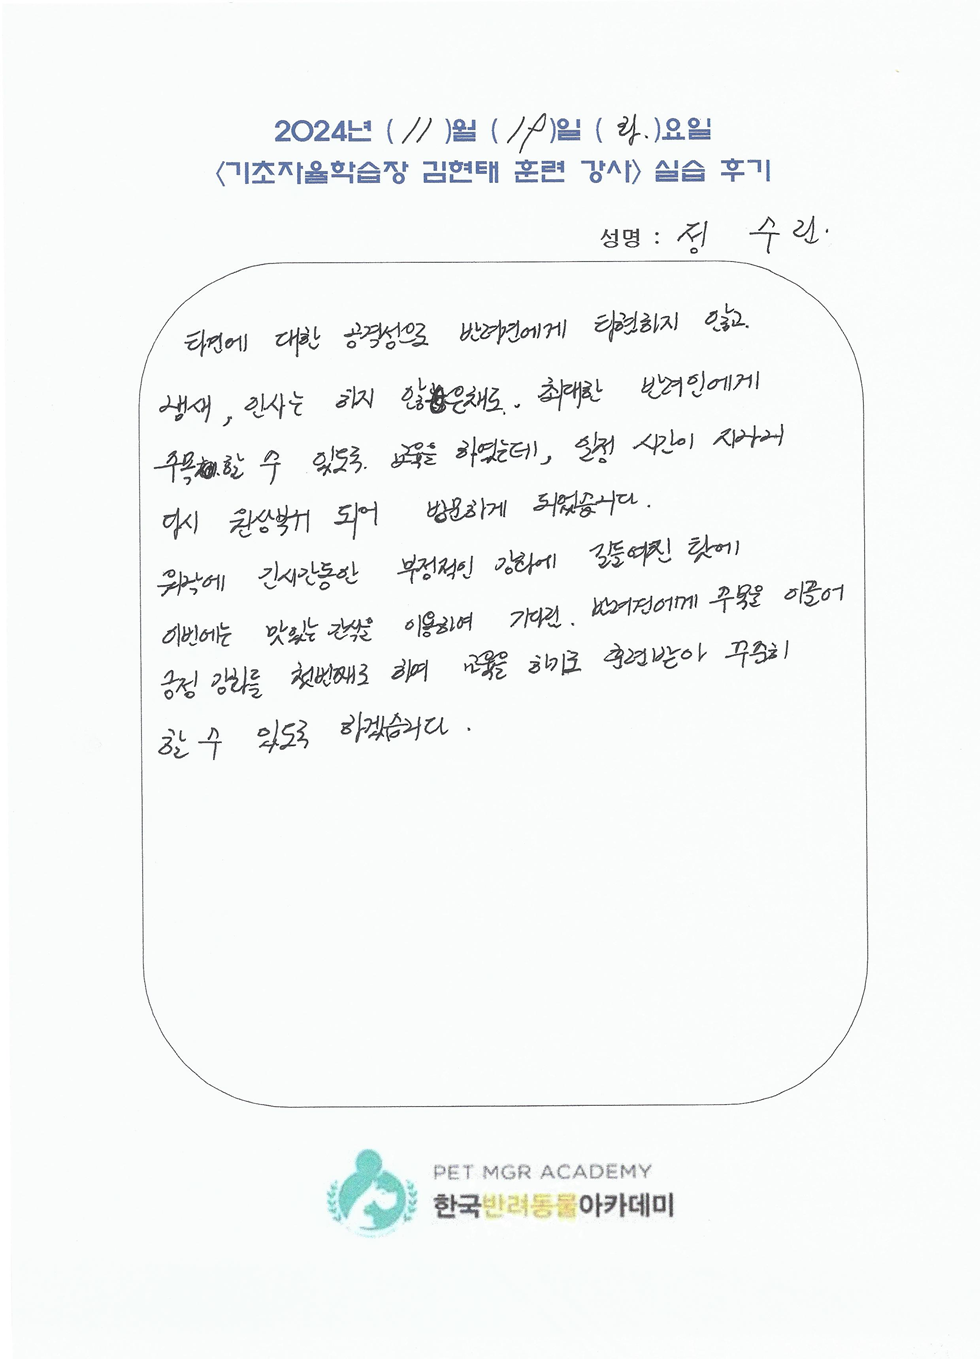 2024년 ( 11 )월 ( 19 )일 ( 화. )요일
<기초자율학습장 김현태 훈련 강사> 실습 후기
성명 : 정 수린.
타견에 대한 공격성으로 반려견에게 타현하지 않고.
냄새, 인사는 하지 않은채로. 최대한 반려인에게
주목할 수 있도록. 교육을 하였는데, 일정 시간이 지나서
다시 원상복귀 되어 방문하게 되었습니다.
워낙에 긴시간동안 부정적인 강화에 길들여진 탓에
이번에는 맛있는 간식을 이용하여 기다린. 반려견에게 주목을 이끌어
긍정 강화를 첫번째로 하며 교육을 하기로 훈련받아 꾸준히
할 수 있도록 하겠습니다.
PET MGR ACADEMY
한국반려동물아카데미